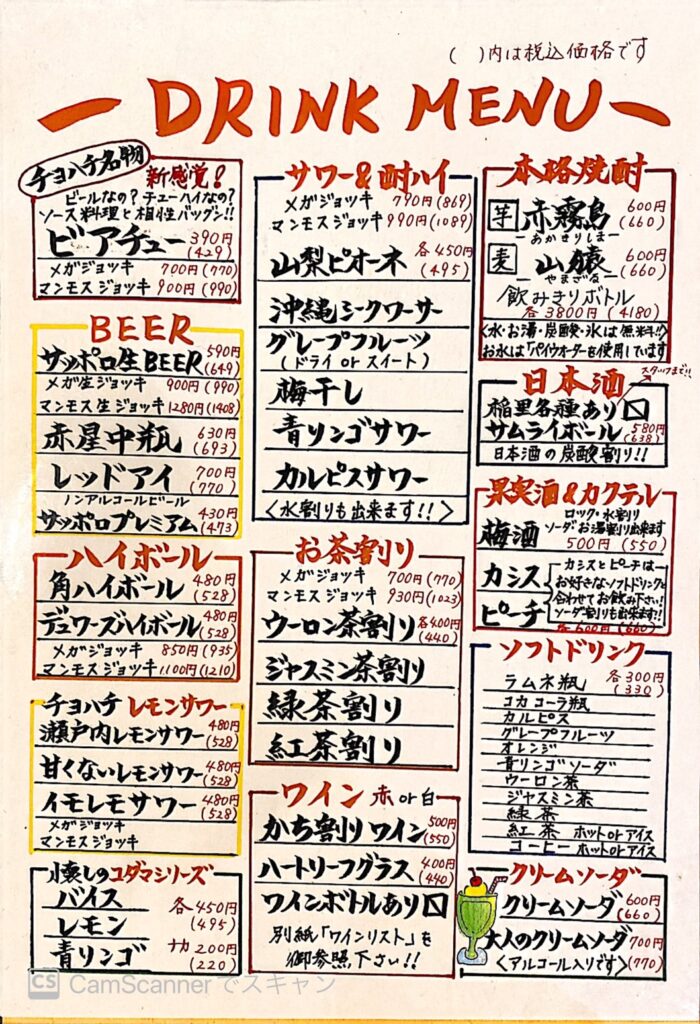 ( )内は税込価格です
DRINK MENU
チョハチ名物
新感覚!
ビールなの?チューハイなの?
ソース料理と相性バツグン!!
ビアチュー 390円 (429)
メガジョッキ 700円 (770)
マンモスジョッキ 900円 (990)
BEER
サッポロ生BEER 590円 (649)
メガ生ジョッキ 900円 (990)
マンモス生ジョッキ 1280円 (1408)
赤星中瓶 630円 (693)
レッドアイ 700円 (770)
ノンアルコールビール
サッポロプレミアム 430円 (473)
ハイボール
角ハイボール 480円 (528)
デュワーズハイボール 480円 (528)
メガジョッキ 850円 (935)
マンモスジョキ 1100円 (1210)
チョハチレモンサワー
瀬戸内レモンサワー 480円 (528)
甘くないレモンサワー 480円 (528)
イモレモサワー 480円 (528)
メガジョッキ
マンモスジョッキ
懐しのコダマシリーズ
バイス 各450円
レモン (495)
青リンゴ ナカ200円 (220)
サワー&酎ハイ
メガジョッキ 790円 (869)
マンモスジョッキ 990円 (1089)
山梨ピオーネ 各450円 (495)
沖縄シークワーサー
グレープフルーツ
(ドライ or スイート)
梅干し
青リンゴサワー
カルピスサワー
<水割りも出来ます!!>
お茶割り
メガジョッキ 700円 (770)
マンモスジョキ 930円 (1023)
ウーロン茶割り 各400円 (440)
ジャスミン茶割り
緑茶割り
紅茶割り
ワイン 赤or白
かち割りワイン 500円 (550)
ハートリーフグラス 400円 (440)
ワインボトルあり〼
別紙「ワインリスト」を
御参照下さい!!
本格焼酎
芋 赤霧島 600円 (660)
ーあかきりしまー
麦 山猿 600円 (660)
ーやまざるー
飲みきりボトル
各3800円 (4180)
<水・お湯・炭酸・氷は無料!!>
お水は「パイウォーターを使用しています
日本酒 スタッフまで!!
稲里各種あり〼
サムライボール 580円 (638)
日本酒の炭酸割り!!
果実酒&カクテル
ロック・水割り
梅酒 ソーダお湯割り出来ます
500円 (550)
カシス カシスとピーチは
お好きなソフトドリンクと
合わせてお飲み下さい!!
ピーチ ソーダ割りも出来ます!!
各600円 (660)
ソフトドリンク
ラムネ瓶 各300円 (330)
コカコーラ瓶
カルピス
グレープフルーツ
オレンジ
青リンゴソーダ
ウーロン茶
ジャスミン茶
緑茶
紅茶 ホットorアイス
コーヒー ホットorアイス
クリームソーダ
クリームソーダ 600円 (660)
大人のクリームソーダ 700円
<アルコール入りです> (770)
CS CamScannerでスキャン